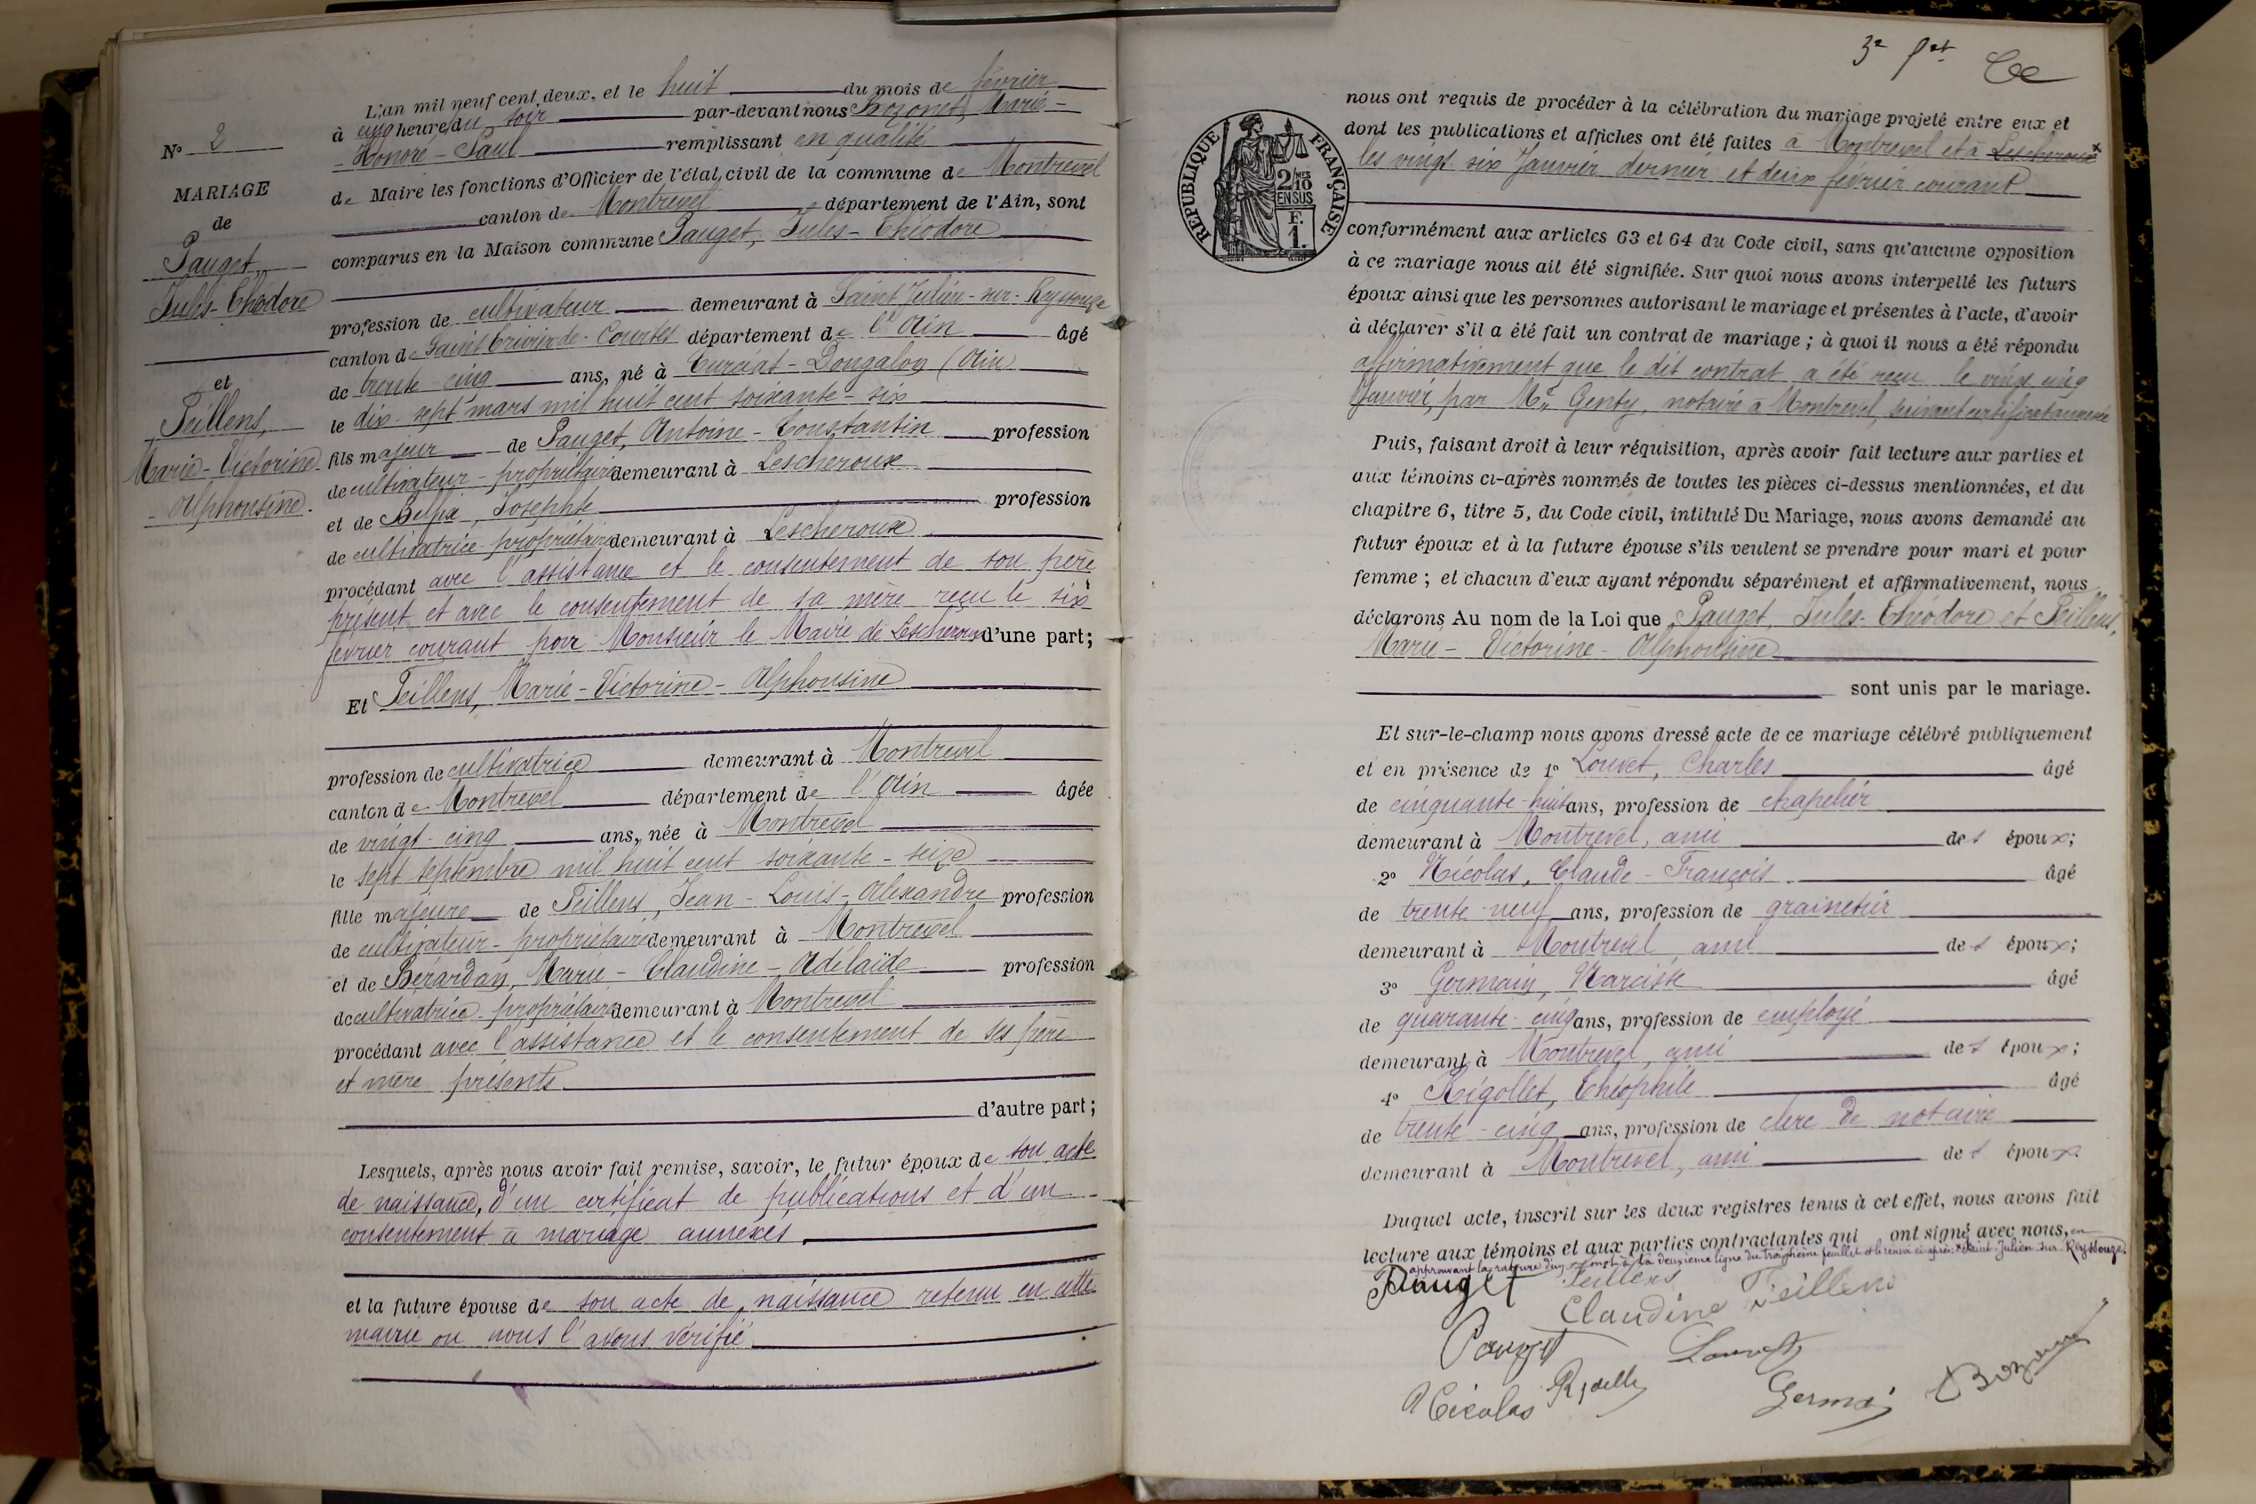 N° 2
MARIAGE
de
Pauget
Jules-Théodore
et
Teillens,
Marie-Victorine
-Alphonsine.
L'an mil neuf cent deux, et le huit du mois de février
à cinq heures du soir par-devant nous Bozonet, Marie-
-Honoré-Paul remplissant en qualité
de Maire les fonctions d'Officier de l'état civil de la commune de Montrevel
canton de Montrevel département de l'Ain, sont
comparus en la Maison commune Pauget, Jules-Théodore
profession de cultivateur demeurant à Saint Julien-sur-Reyssouze
canton de Saint Trivier de-Courtes département de l'Ain âgé
de trente-cinq ans, né à Curciat-Dongalon (Ain)
le dix-sept mars mil huit cent soixante-six
fils majeur de Pauget, Antoine-Constantin profession
de cultivateur-propriétaire demeurant à Lescheroux
et de Josephte profession
de cultivatrice-propriétaire demeurant à Lescheroux
procédant avec l'assistance et le consentement de son père
présent et avec le consentement de sa mère reçu le six
février courant par Monsieur le Maire de Lescheroux d'une part;
Et Teillens, Marie-Victorine-Alphonsine
profession de cultivatrice demeurant à Montrevel
canton de Montrevel département de l'Ain âgée
de vingt-cinq ans, née à Montrevel
le sept septembre mil huit cent soixante-seize
fille majeure de Teillens, Jean-Louis-Alexandre profession
de cultivateur-propriétaire demeurant à Montrevel
et de Bérardan, Marie-Claudine-Adelaïde profession
de cultivatrice-propriétaire demeurant à Montrevel
procédant avec l'assistance et le consentement de ses père
et mère présents
d'autre part;
Lesquels, après nous avoir fait remise, savoir, le futur époux de son acte
de naissance, d'un certificat de publications et d'un
consentement à mariage annexés
et la future épouse de son acte de naissance retenu en cette
mairie où nous l'avons vérifié
3e
RÉPUBLIQUE FRANÇAISE
2/10 EN SUS
F. 1.
nous ont requis de procéder à la célébration du mariage projeté entre eux et
dont les publications et affiches ont été faites à Montrevel et à Lescheroux x
les vingt-six Janvier dernier et deux février courant
conformément aux articles 63 et 64 du Code civil, sans qu'aucune opposition
à ce mariage nous ait été signifiée. Sur quoi nous avons interpellé les futurs
époux ainsi que les personnes autorisant le mariage et présentes à l'acte, d'avoir
à déclarer s'il a été fait un contrat de mariage ; à quoi il nous a été répondu
affirmativement que le dit contrat a été reçu le vingt cinq
Janvier, par Me Genty, notaire à Montrevel, suivant certificat annexé
Puis, faisant droit à leur réquisition, après avoir fait lecture aux parties et
aux témoins ci-après nommés de toutes les pièces ci-dessus mentionnées, et du
chapitre 6, titre 5, du Code civil, intitulé Du Mariage, nous avons demandé au
futur époux et à la future épouse s'ils veulent se prendre pour mari et pour
femme ; et chacun d'eux ayant répondu séparément et affirmativement, nous
déclarons Au nom de la Loi que Pauget, Jules-Théodore et Teillens,
Marie-Victorine-Alphonsine
sont unis par le mariage.
Et sur-le-champ nous avons dressé acte de ce mariage célébré publiquement
et en présence de 1° Louvet, Charles âgé
de cinquante-huit ans, profession de chapelier
demeurant à Montrevel, ami des époux;
2° Nicolas, Claude-François âgé
de trente-neuf ans, profession de grainetier
demeurant à Montrevel, ami des époux;
3° Germain, Narcisse âgé
de quarante-cinq ans, profession de employé
demeurant à Montrevel, ami des époux;
4° Rigollet, Théophile âgé
de trente-cinq ans, profession de clerc de notaire
demeurant à Montrevel, ami des époux.
Duquel acte, inscrit sur les deux registres tenus à cet effet, nous avons fait
lecture aux témoins et aux parties contractantes qui ont signé avec nous, en
approuvant la rature d'un mot à la deuxième ligne du troisième feuillet et le renvoi ci-après: x Saint-Julien sur Reyssouze.
Pauget Teillens
Claudine Teillens
Pauget Louvet
Nicolas Germain